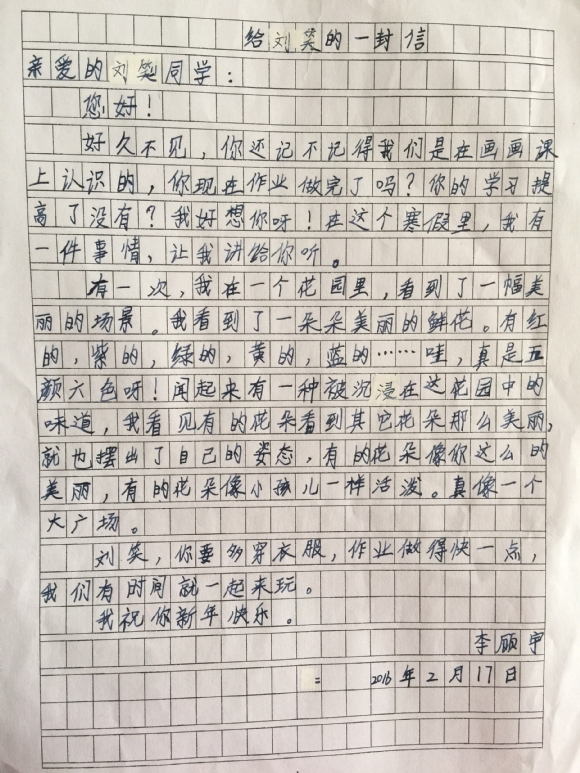 给刘笑的一封信
亲爱的刘笑同学：
您好！
好久不见，你还记不记得我们是在画画课
上认识的，你现在作业做完了吗？你的学习提
高了没有？我好想你呀！在这个寒假里，我有
一件事情，让我讲给你听。
有一次，我在一个花园里，看到了一幅美
丽的场景。我看到了一朵朵美丽的鲜花。有红
的，紫的，绿的，黄的，蓝的……哇，真是五
颜六色呀！闻起来有一种被沉浸在这花园中的
味道，我看见有的花朵看到其它花朵那么美丽，
就也摆出了自己的姿态，有的花朵像你这么的
美丽，有的花朵像小孩儿一样活泼。真像一个
大广场。
刘笑，你要多穿衣服，作业做得快一点，
我们有时间就一起来玩。
我祝你新年快乐。
李顾宇
2016年2月17日